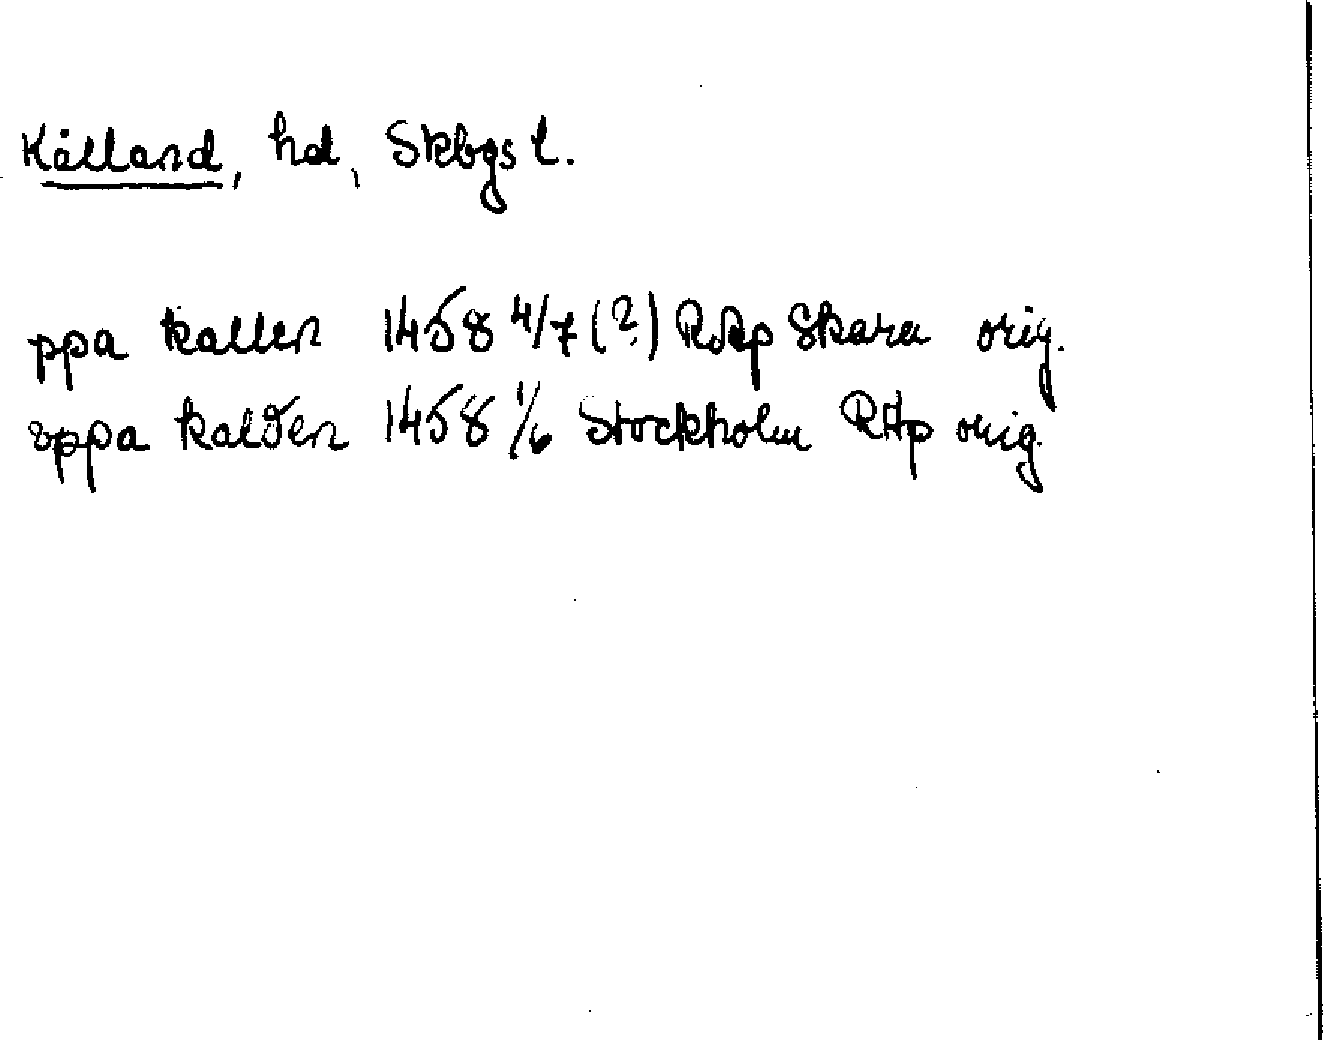 Kålland, hd, Skbgs l.
ppa kallen 1458 4/7 (?) RAp Skara orig.
vppa kalden 1458 1/6 Stockholm RAp orig.